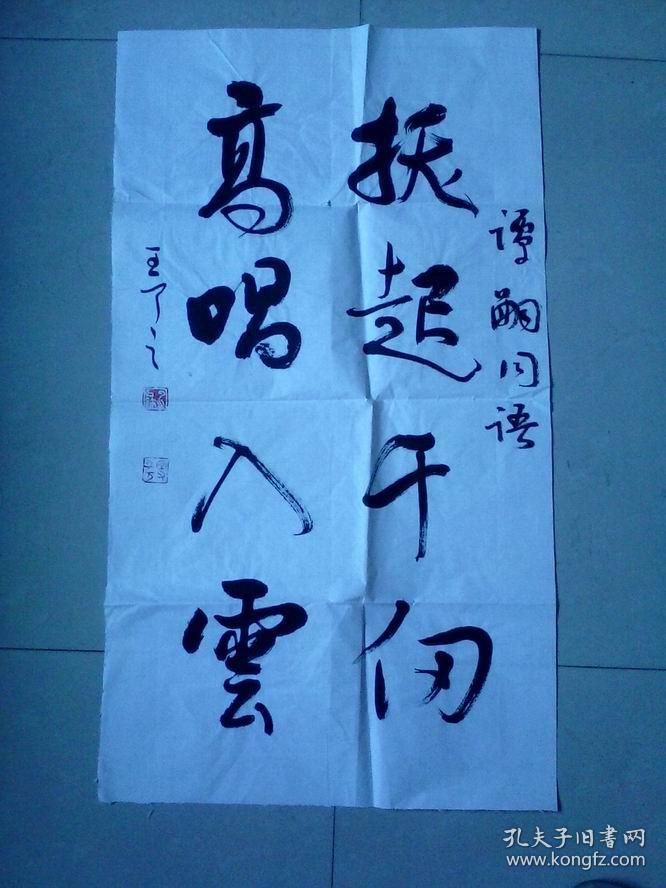 谭嗣同语
拔起千仞
高唱入雲
王
孔夫子旧书网
www.kongfz.com